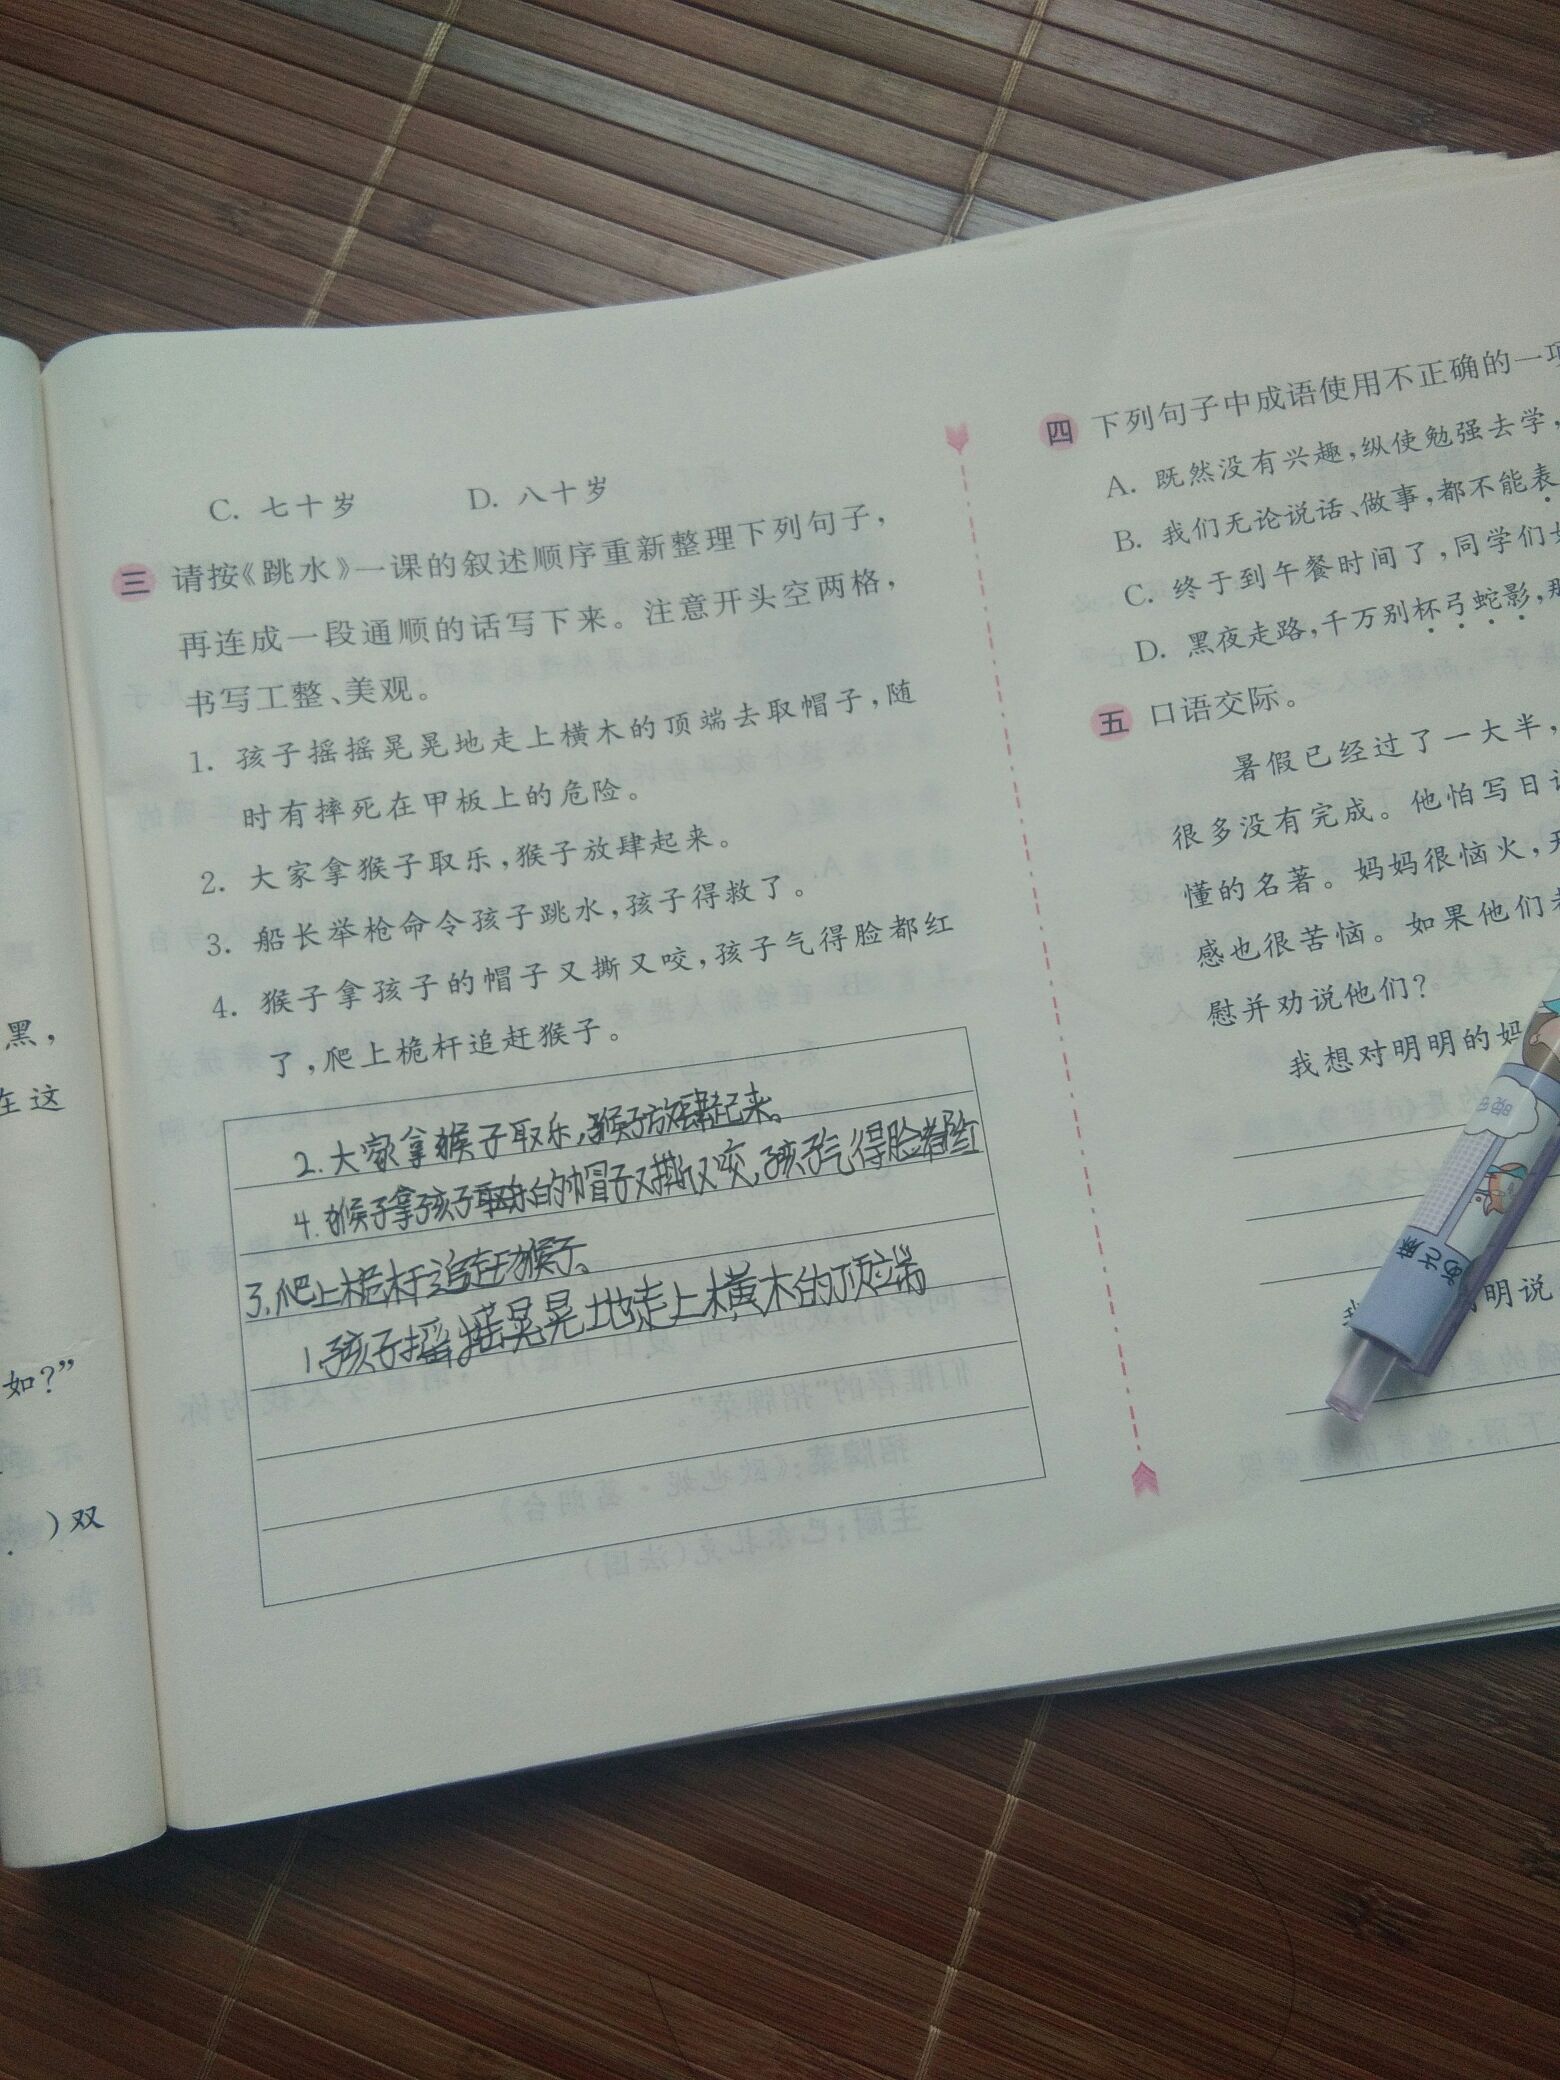 黑，
在这
如？”
）双
C. 七十岁 D. 八十岁
三 请按《跳水》一课的叙述顺序重新整理下列句子，
再连成一段通顺的话写下来。注意开头空两格，
书写工整、美观。
1. 孩子摇摇晃晃地走上横木的顶端去取帽子，随
时有摔死在甲板上的危险。
2. 大家拿猴子取乐，猴子放肆起来。
3. 船长举枪命令孩子跳水，孩子得救了。
4. 猴子拿孩子的帽子又撕又咬，孩子气得脸都红
了，爬上桅杆追赶猴子。
2.大家拿猴子取乐，猴子放肆起来。
4.猴子拿孩子的帽子又撕又咬，孩子气得脸都红
3.爬上桅杆追赶猴子。
1.孩子摇摇晃晃地走上横木的顶端
四 下列句子中成语使用不正确的一项
A. 既然没有兴趣，纵使勉强去学，
B. 我们无论说话、做事，都不能表
C. 终于到午餐时间了，同学们
D. 黑夜走路，千万别杯弓蛇影，那
五 口语交际。
暑假已经过了一大半，
很多没有完成。他怕写日记
懂的名著。妈妈很恼火，
感也很苦恼。如果他们
慰并劝说他们？
我想对明明的妈
明说